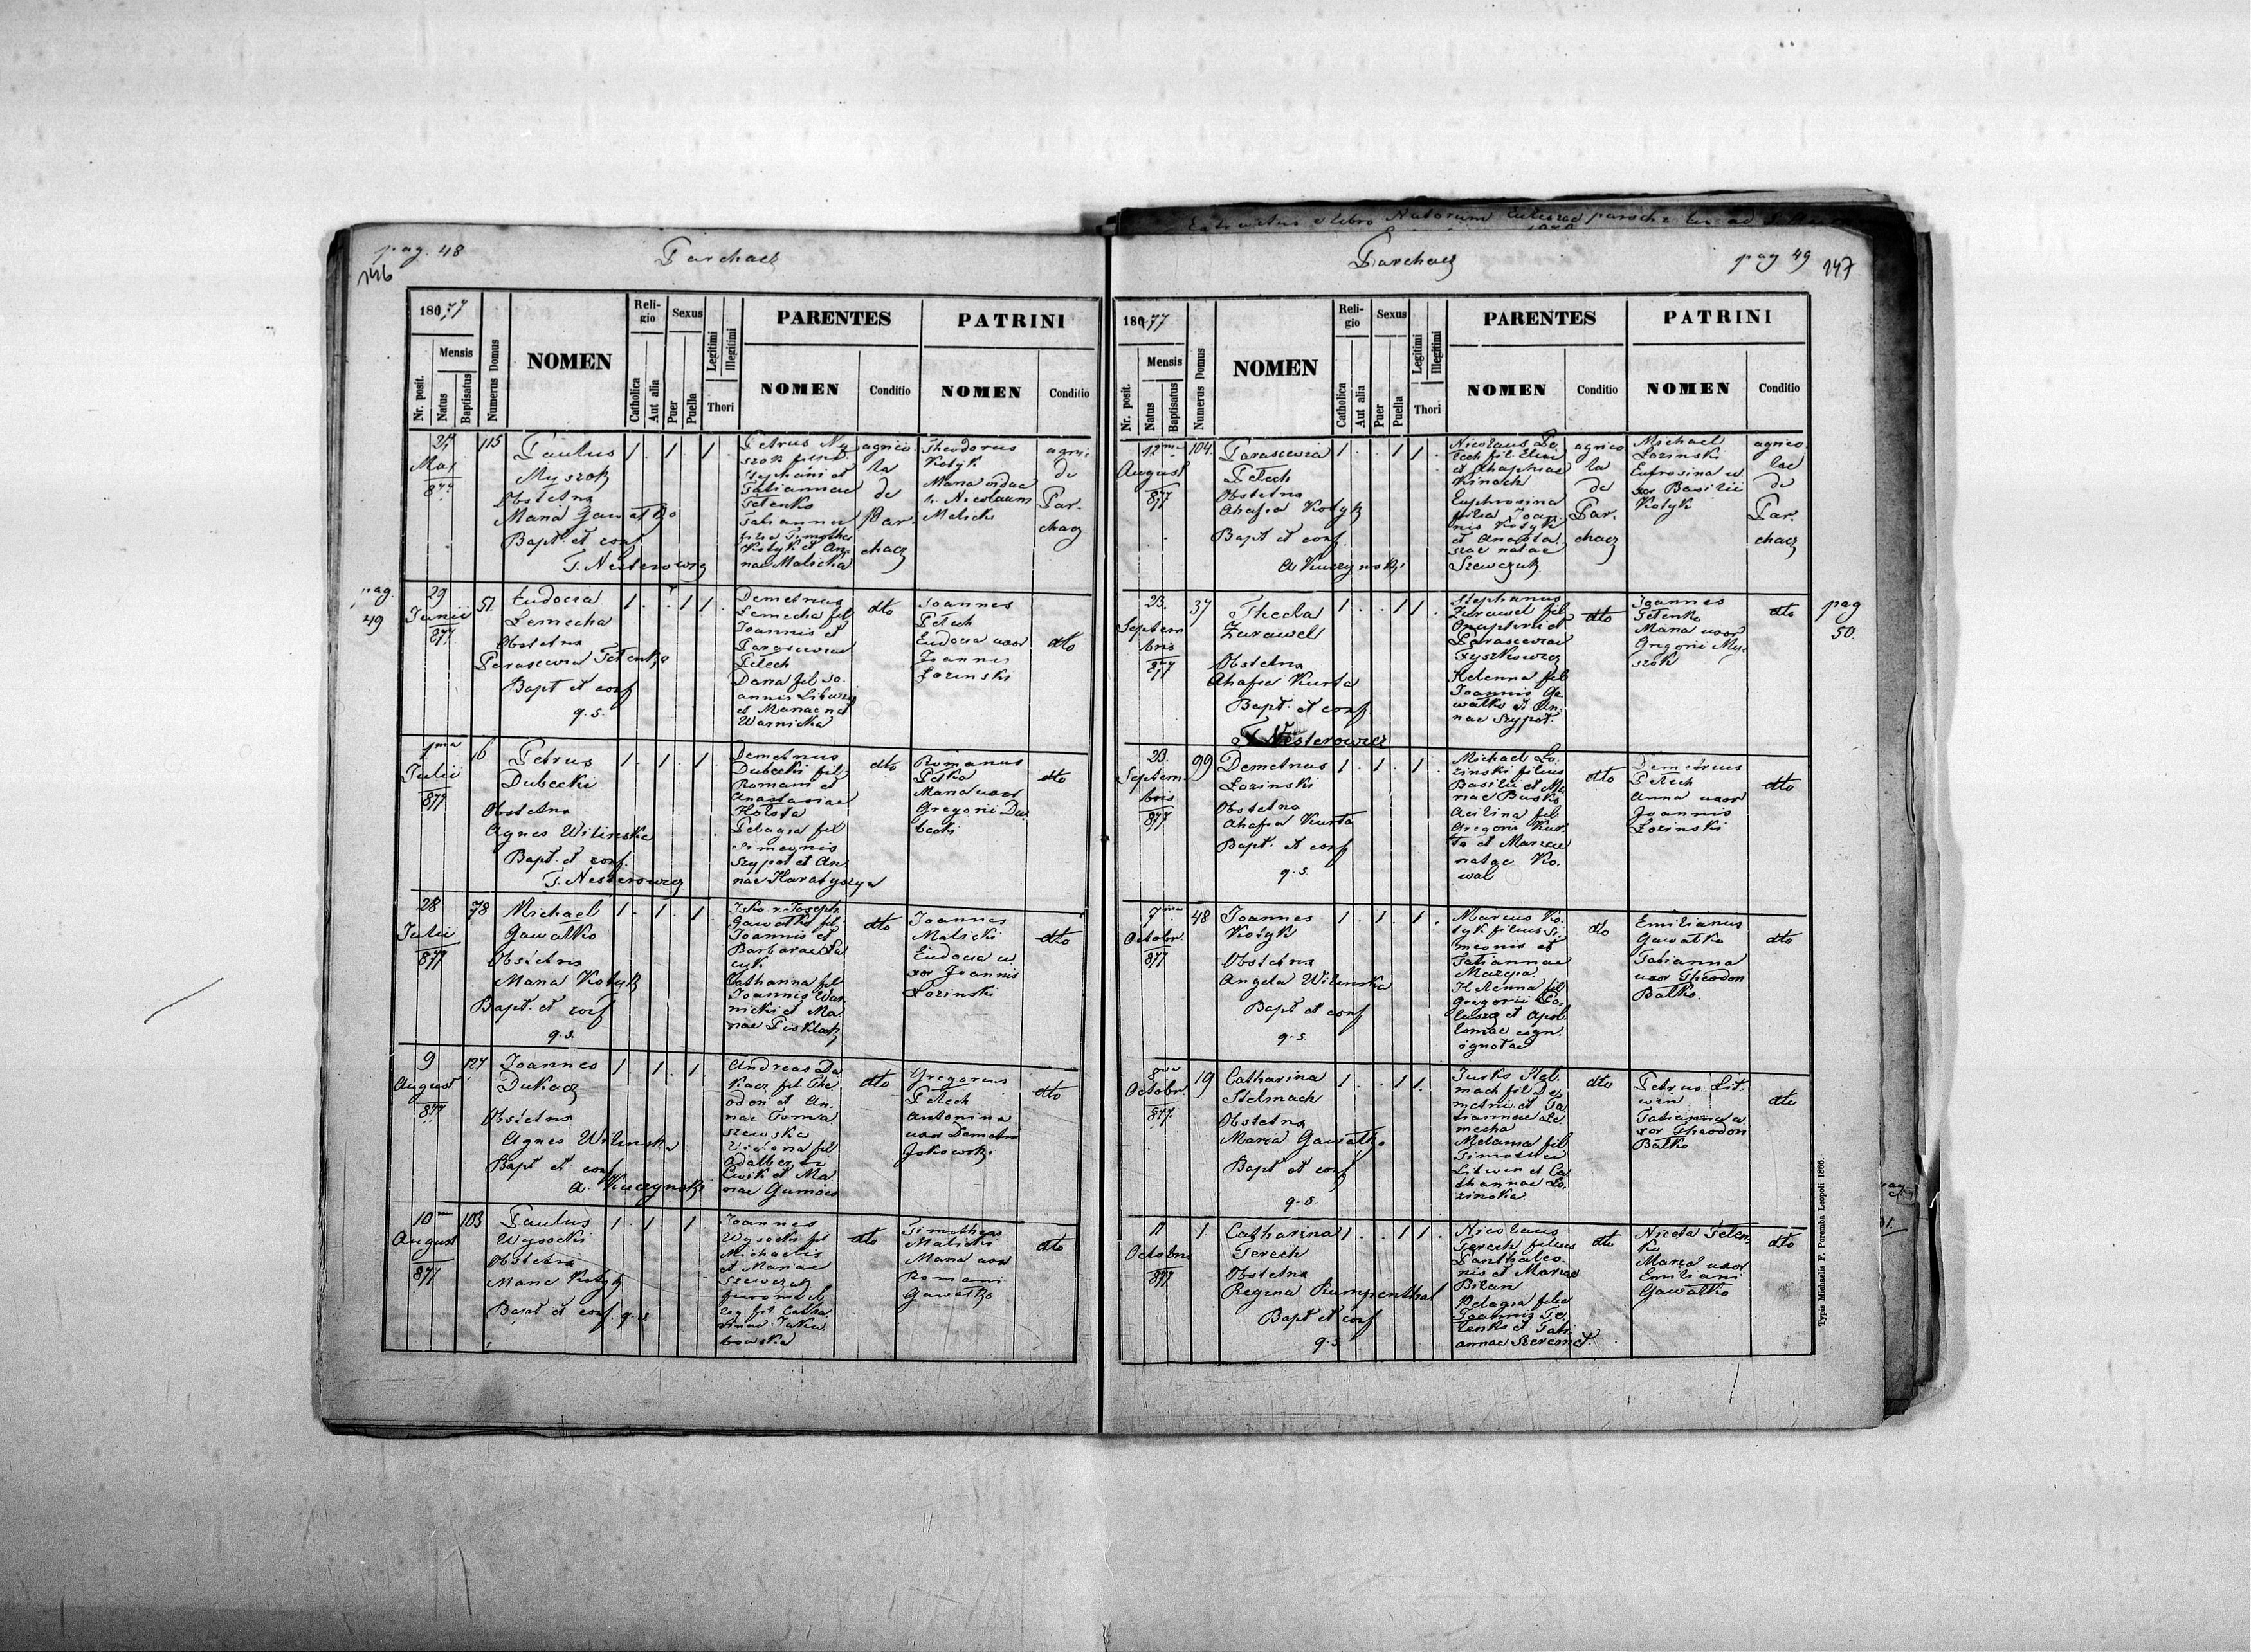 pag. 48
146
Parchacz
180 77
Nr. posit.
Mensis
Natus
Baptisatus
Numerus Domus
NOMEN
Reli-
gio
Catholica
Aut alia
Sexus
Puer
Puella
Legitimi
Illegitimi
Thori
PARENTES
NOMEN
Conditio
PATRINI
NOMEN
Conditio
Mai
877
115
Paulus
Myszok
Obstetrix
Maria Gawałko
Bapt. et conf
T. Nesterowicz
1 . 1 . 1 .
Petrus My
szok filius
Stephani et
Tatiannae
Tetenko
Tatianna
filia Timothei
Kotyk et An
nae Malicka
agrico
la
de
Par.
chacz
Theodorus
Kotyk
Maria vidua
p. Nicolaum
Malicki
agric
de
Par.
chacz
pag.
49
29
Junii
877
51.
Eudocia
Lemecha
Obstetrix
Parascewia Tetenko
Bapt et conf
q. s.
1 . . 1 1 .
Demetrius
Lemecha fil
Joannis et
Parascewiae
Petech
Daria fil Jo
annis Litwin
et Mariae nat
Warnicka
dto
Joannes
Petech
Eudocia uxor
Joannis
Łozinski
dto
1ma
Julii
877
16
Petrus
Dubecki
Obstetrix
Agnes Wilinska
Bapt. et conf.
T. Nesterowicz
1 . 1 . 1
Demetrius
Dubecki fil
Romani et
Anastasiae
Hołota
Pelagia fil
Simeonis
Szypot et An
nae Haratyszyn
dto
Romanus
Petka
Maria uxor
Gregorii Du
becki
dto
28
Julii
877
78
Michael
Gawałko
Obstetrix
Maria Kotyk
Bapt. et conf
q. s.
1 . 1 . 1
Jsko v. Joseph
Gawałko fil
Joannis et
Barbarae
Catharina fil
Joannis War
nicki et Ma
riae
dto
Joannes
Malicki
Eudocia u
xor Joannis
Łozinski
dto
9
August
877
127
Joannes
Dukacz
Obstetrix
Agnes Wilinska
Bapt et conf
A. Kuczynski
1 . 1 . 1
Andreas Du
kacz fil. The
odori et An.
nae Toma
szewska
Victoria fil
Adalberti
Cwik et Ma
riae
dto
Gregorius
Petech
Antonina
uxor Demetri
Jskowski
dto
10ma
August
877
103
Paulus
Wysocki
Obstetrix
Maria Kotyk
Bapt et conf. q. s
1 . 1 . 1
Joannes
Wysocki fil
Michaelis
et Mariae
Szewczuk
fil. Catha
rinae Jaku
bowska
dto
Timotheus
Malicki
Maria uxor
Romani
Gawałko
dto
Parchacz
pag 49
147
180 77
Nr. posit.
Mensis
Natus
Baptisatus
Numerus Domus
NOMEN
Reli-
gio
Catholica
Aut alia
Sexus
Puer
Puella
Legitimi
Illegitimi
Thori
PARENTES
NOMEN
Conditio
PATRINI
NOMEN
Conditio
12ma
August
877
104.
Parascewia
Petech
Obstetrix
Ahafia Kotyk
Bapt et conf.
A Kuczynski
1 . . 1 1 .
Nicolaus Pe
tech fil. Eliae
et Ahaphiae
Kinach
Euphrosina
filia Joan
nis Kotyk
et Anasta.
siae natae
Szewczuk
agrico
la
de
Par.
chacz
Michael
Łozinski
Eufrosina u
xor Basilii
Kotyk
agrico.
lae
de
Par.
chacz
23.
Septem
bris
877
37
Thecla
Zurawel
Obstetrix
Ahafia Kurta
Bapt. et conf
T Nesterowicz
1 . . 1 1 .
Stephanus
Zurawel fil
Onuphrii et
Parascewiae
Fyszkowicz
Helenna fil
Joannis Ga
wałko et An.
nae Szypot.
dto
Joannes
Tetenko
Maria uxor
Gregorii My.
szok
dto
pag
50.
23.
Septem
bris
877
99
Demetrius
Łozinski
Obstetrix
Ahafia Kurta
Bapt. et conf
q. s.
1 . 1 . 1 .
Michael Ło.
zinski filius
Basilii et Ma
riae Busko
Acilina fil
Gregorii Kur.
ta et Mariae
natae Ko.
wal
dto
Demetrius
Petech
Anna uxor
Joannis
Łozinski
dto
7ma
Octobr.
877
48
Joannes
Kotyk
Obstetrix
Angela Wilinska
Bapt et conf
q. s.
1 . 1 . 1 .
Marcus Ko.
tyk filius Si
meonis et
Tatiannae
Mazepa
Helenna fil
Gregorii Pa.
lusz et Apol
loniae cogn.
ignotae
dto
Emilianus
Gawałko
Tatianna
uxor Theodori
Bałko.
dto
8va
Octobr.
877
19
Catharina
Stelmach
Obstetrix
Maria Gawałko
Bapt et conf
q. s.
1 . . 1 1 .
Jusko Stel.
mach fil De
metrii et Ta
tiannae Le
mecha
Melania fil
Timothei
Litwin et Ca
tharinae Ło.
zinska.
dto
Petrus Lit.
win
Tatianna u
xor Theodori
Bałko
dto
11
Octobris
877
1.
Catharina
Terech
Obstetrix
Regina Rumpenthal
Bapt et conf
q. s.
1 . . 1 1 .
Nicolaus
Terech filius
Panthaleo.
nis et Mariae
Bilan
Pelagia filia
Joannis Te.
tenko et Tati
annae
dto
Nicola Teten
ko
Maria uxor
Emiliani
Gawałko
dto
Typis Michaelis F. Poremba Leopoli 1866.